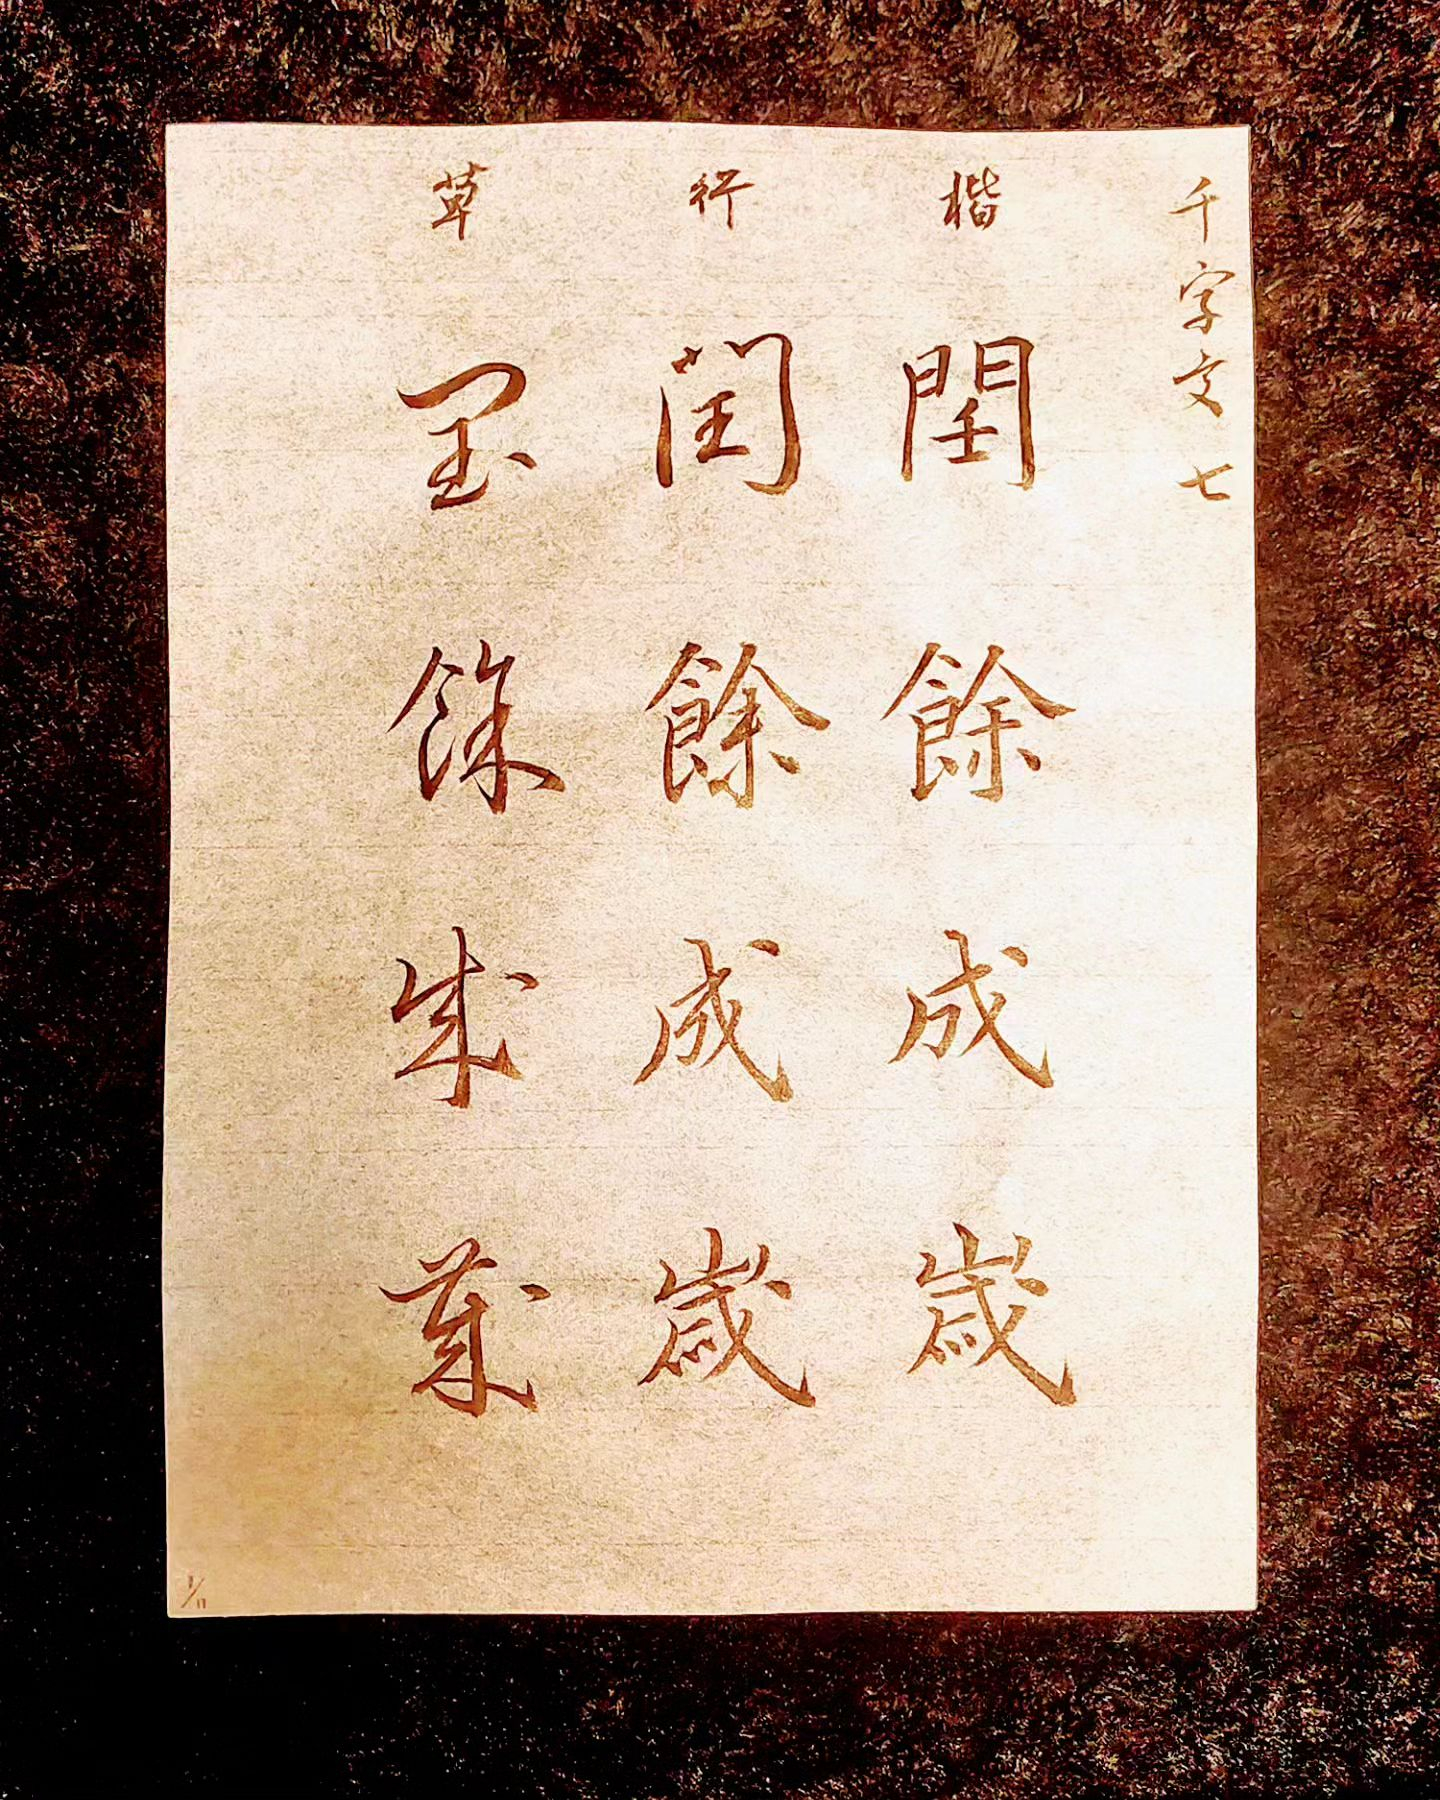 千字文七
楷
閏餘成歲
行
閏餘成歲
草
閏餘成歲
1/11